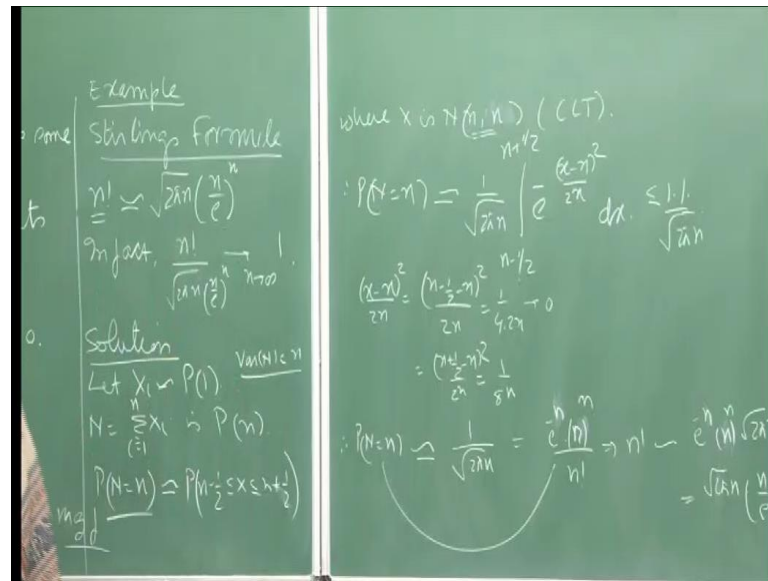 Example
some
Stirlings Formula
n! ≃ √2πn (n/e)^n
ts
In fact, n!/(√2πn (n/e)^n) → 1. n→∞
0.
Solution
Let Xi ~ P(1). Var(N) = n
N = Σ_{i=1}^{n} Xi is P(n).
P(N=n) ≃ P(n-1/2 ≤ X ≤ n+1/2)
where X is N(n, n) (CLT).
∴ P(N=n) ≃ 1/√2πn ∫_{n-1/2}^{n+1/2} e^{-(x-n)^2/2n} dx. ≤ 1.1/√2πn
(x-n)^2/2n = (n-1/2-n)^2/2n = 1/4.2n → 0
= (n+1/2-n)^2/2n = 1/8n
∴ P(N=n) ≃ 1/√2πn = e^{-n}.(n)^n/n! ⇒ n! ~ e^{-n}(n)^n √2π
= √2πn (n/e